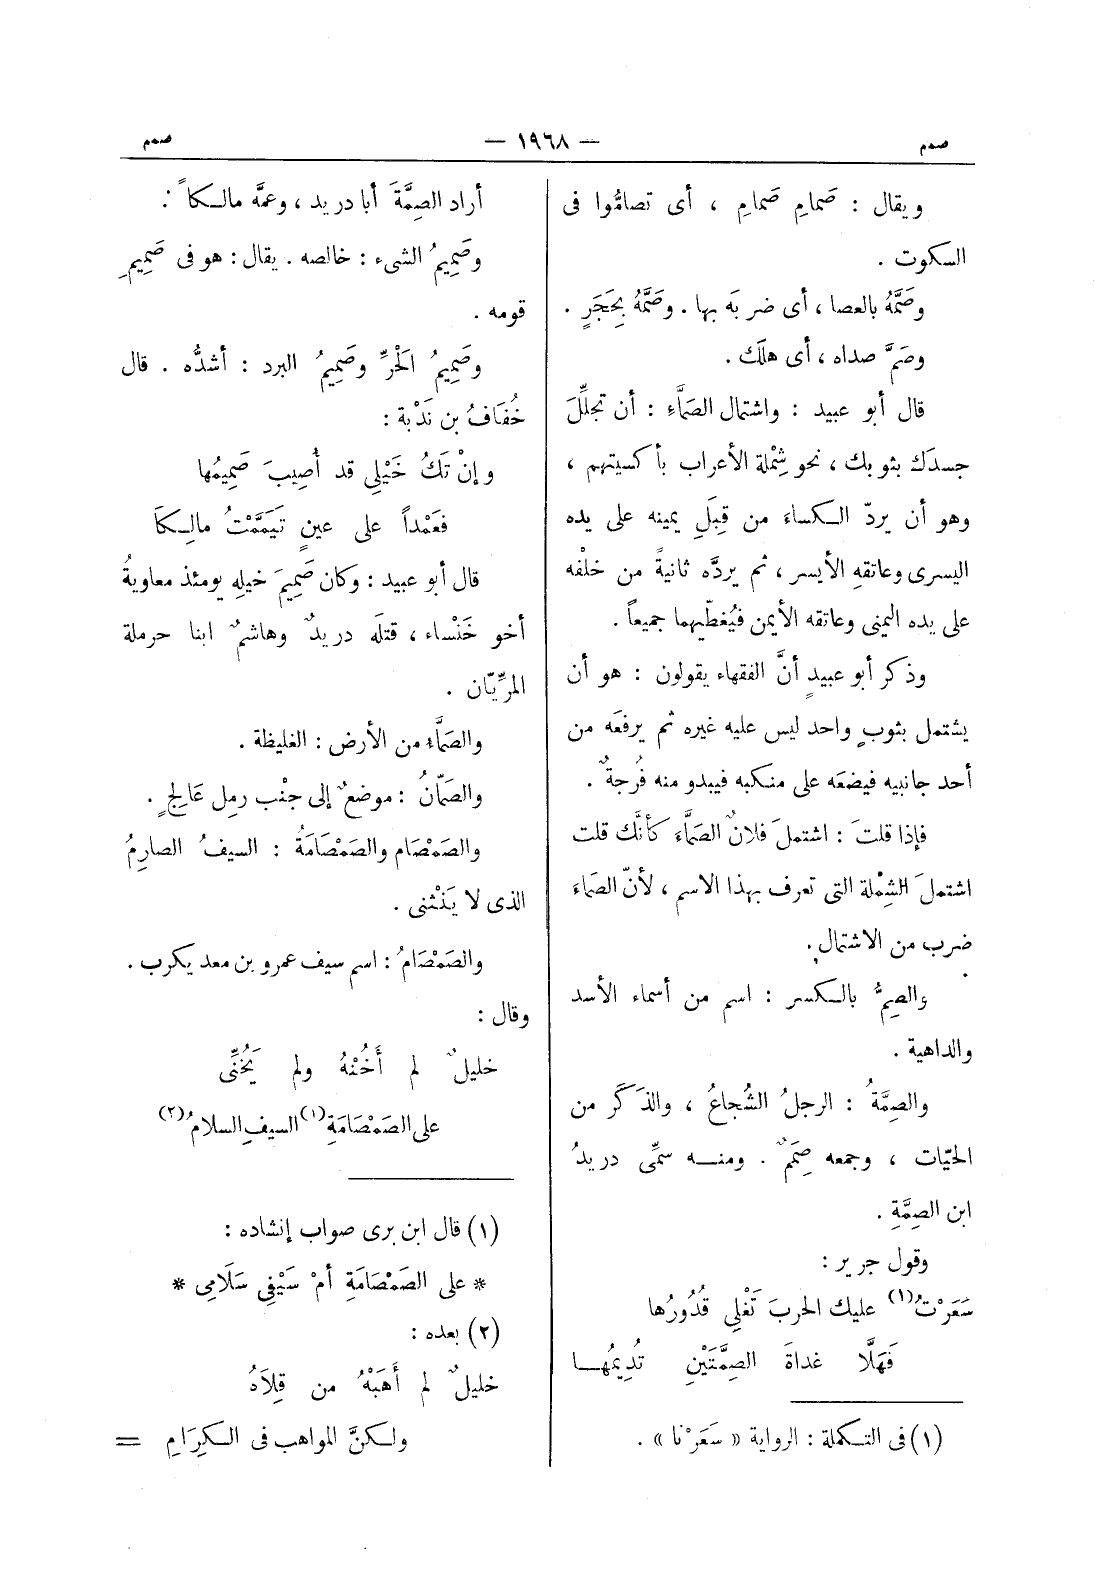 صمم
— ١٩٦٨ —
صمم
ويقال : صَمامِ صَمامِ ، أى تصامُّوا فى
السكوت .
وصَمَّهُ بالعصا ، أى ضربَه بها . وصَمَّهُ بِحَجَرٍ .
وصَمَّ صداه ، أى هلَك .
قال أبو عبيد : واشتمال الصَمَّاءِ : أن تجلِّلَ
جسدَك بثوبك ، نحو شِمْلة الأعراب بأكسيتهم ،
وهو أن يردّ الكساءَ من قِبَلِ يمينه على يده
اليسرى وعاتقهِ الأيسر ، ثم يردَّه ثانيةً من خلْفه
على يده اليمنى وعاتقه الأيمن فيُغطّيهما جميعاً .
وذكر أبو عبيدٍ أنَّ الفقهاء يقولون : هو أن
يشتمل بثوبٍ واحد ليس عليه غيره ثم يرفعَه من
أحد جانبيه فيضعَه على منكبه فيبدو منه فُرجةٌ .
فإذا قلتَ : اشتملَ فلانٌ الصَمَّاءَ كأنَّك قلت
اشتملَ الشِمْلة التى تعرف بهذا الاسم ، لأنّ الصَمَّاءَ
ضرب من الاشتمال .
والصِمُّ بالكسر : اسم من أسماء الأسد
والداهية .
والصِمَّةُ : الرجلُ الشُجاعُ ، والذَكَر من
الحيّات ، وجمعه صِمَمٌ . ومنه سمِّى دريدُ
ابن الصِمَّةِ .
وقول جرير :
سَعَرْتُ(١) عليك الحربَ تَغْلِى قُدُورُها
فَهَلَّا غداةَ الصِمَّتَيْنِ تُدِيمُها
(١) فى التكملة : الرواية « سَعَرْنا » .
أراد الصِمَّةَ أبا دريد ، وعمَّه مالكاً .
وصَمِيمُ الشىء : خالصه . يقال : هو فى صَمِيمِ
قومه .
وصَمِيمُ الحَرِّ وصَمِيمُ البرد : أشدُّه . قال
خُفَافُ بن نَدْبة :
وإنْ تَكُ خَيْلِى قد أُصِيبَ صَمِيمُها
فَعَمْداً على عينٍ تَيَمَّمْتُ مالِكَا
قال أبو عبيد : وكان صَمِيمَ خيلِه يومئذ معاويةُ
أخو خَنْساء ، قتلَه دريدٌ وهاشمٌ ابنا حرملة
المرِّيّان .
والصَمَّاءِ من الأرض : الغليظة .
والصَمّانُ : موضعٌ إلى جنْب رمل عَالِجٍ .
والصَمْصَام والصَمْصَامَةُ : السيفُ الصارِمُ
الذى لا يَنْثنى .
والصَمْصَامُ : اسم سيف عمرو بن معد يكرب .
وقال :
خليلٌ لم أَخُنْهُ ولم يَخُنِّى
على الصَمْصَامَةِ(١) السيفِ السلامُ(٢)
(١) قال ابن برى صواب إنشاده :
* على الصَمْصَامَةِ أمْ سَيْفِى سَلَامِى *
(٢) بعده :
خليلٌ لم أَهَبْهُ من قِلَاهُ
ولكنَّ المواهب فى الكِرَامِ =